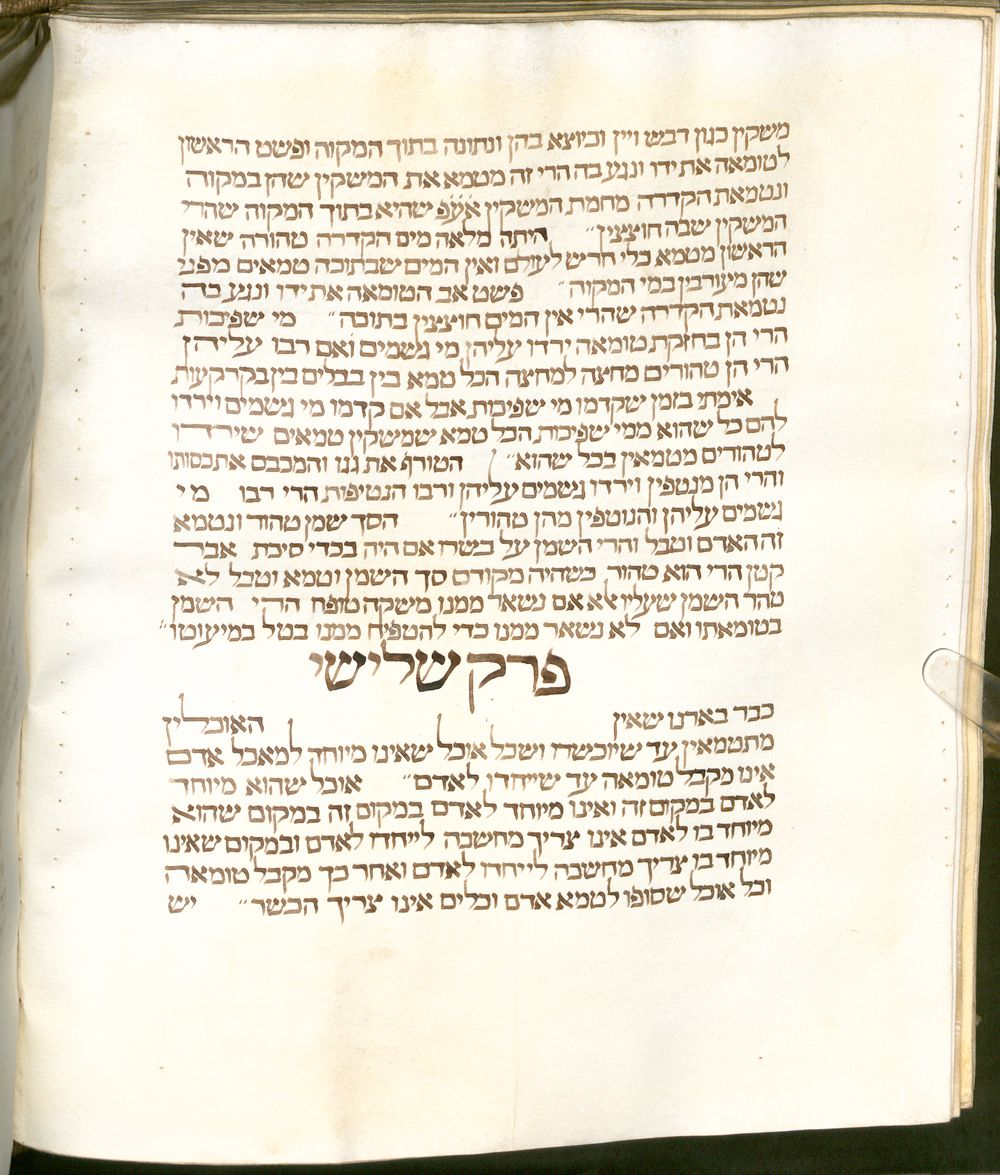 משקין כגון דבש ויין וכיוצא בהן ונתונה בתוך המקוה ופשט הראשון
לטומאה את ידו ונגע בה הרי זה מטמא את המשקין שהן במקוה
ונטמאת הקדרה מחמת המשקין אעפ שהיא בתוך המקוה שהרי
המשקין שבה חוצצין״ היתה מלאה מים הקדרה טהורה שאין
הראשון מטמא כלי חרש לעולם ואין המים שבתוכה טמאים מפני
שהן מיעורבין במי המקוה״ פשט אב הטומאה את ידו ונגע בה
נטמאת הקדרה שהרי אין המים חוצצין בתוכה״ מי שפיכות
הרי הן בחזקת טומאה ירדו עליהן מי גשמים ואם רבו עליהן
הרי הן טהורים מחצה למחצה הכל טמא בין בכלים בין בקרקעות
אימתי בזמן שקדמו מי שפיכות אבל אם קדמו מי גשמים וירדו
להם כל שהוא ממי שפיכות הכל טמא שמשקין טמאים שירדו
לטהורים מטמאין בכל שהוא״ הטורף את גגו והמכבס את כסותו
והרי הן מנטפין וירדו גשמים עליהן ורבו הנטיפות הרי רבו מי
גשמים עליהן והנוטפין מהן טהורין״ הסך שמן טהור ונטמא
זה האדם וטבל והרי השמן על בשרו אם היה בכדי סיכת אבר
קטן הרי הוא טהור כשהיה מקודם סך השמן וטמא וטבל לא
טהר השמן שעליו אלא אם נשאר ממנו משקה טופח הרי השמן
בטומאתו ואם לא נשאר ממנו כדי להטפיח ממנו בטל במיעוטו״
פרק שלישי
כבר בארנו שאין האוכלין
מתטמאין עד שיוכשרו ושכל אוכל שאינו מיוחד למאכל אדם
אינו מקבל טומאה עד שייחדו לאדם״ אוכל שהוא מיוחד
לאדם במקום זה ואינו מיוחד לאדם במקום זה במקום שהוא
מיוחד בו לאדם אינו צריך מחשבה לייחדו לאדם ובמקום שאינו
מיוחד בו צריך מחשבה לייחדו לאדם ואחר כך מקבל טומאה
וכל אוכל שסופו לטמא אדם וכלים אינו צריך הכשר״ יש